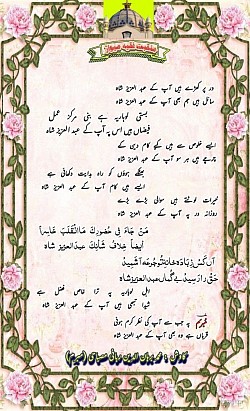 منقبت
در پر کھڑے ہیں آپ کے عبد العزیز شاہ
سائل ہیں ہم بھی آپ کے عبد العزیز شاہ
بستی لوہاریہ ہے بنی مرکز عمل
فیضاں ہیں اس پہ آپ کے عبد العزیز شاہ
ایسے خلوص سے ہیں کیے کام دین کے
چرچے ہیں ہر سو آپ کے عبد العزیز شاہ
بھٹکے ہوؤں کو راہ ہدایت دکھائی ہے
ایسے ہیں کام آپ کے عبد العزیز شاہ
خیرات لوٹتے ہیں سوالی بڑے بڑے
روزانہ در پہ آپ کے عبد العزیز شاہ
مَن جَاءَ فِی حُضورِکَ مَا انقَلَبَ خَائِباً
اَیضاً خِلافَ شَانِکَ عبدالعزیز شاہ
آں کس زیادہ خانہ تو جرعہ آشمید
حق را رسید بے گماں عبدالعزیز شاہ
اہل لوہاریہ پہ ترا خاص فضل ہے
شیدا سبھی ہیں آپ کے عبد العزیز شاہ
پہ جب سے آپ کی نظر کرم ہوئی
قرباں ہے وہ بھی آپ کے عبد العزیز شاہ
الدین ربانی مصباحی